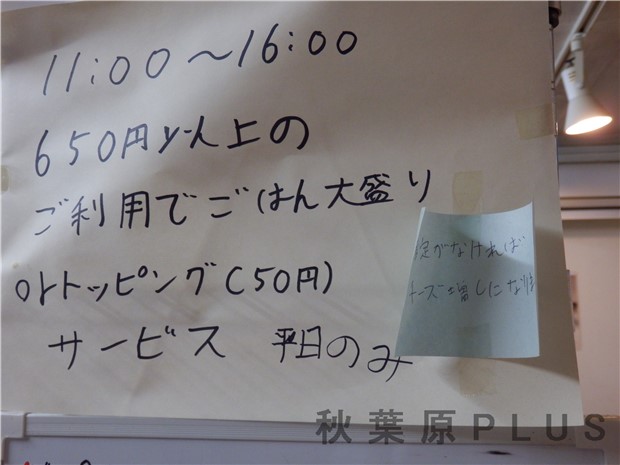 11:00～16:00
650円以上の
ご利用でごはん大盛り
orトッピング(50円)
サービス 平日のみ
定がなければ
ーズ増しになりま
秋葉原PLUS